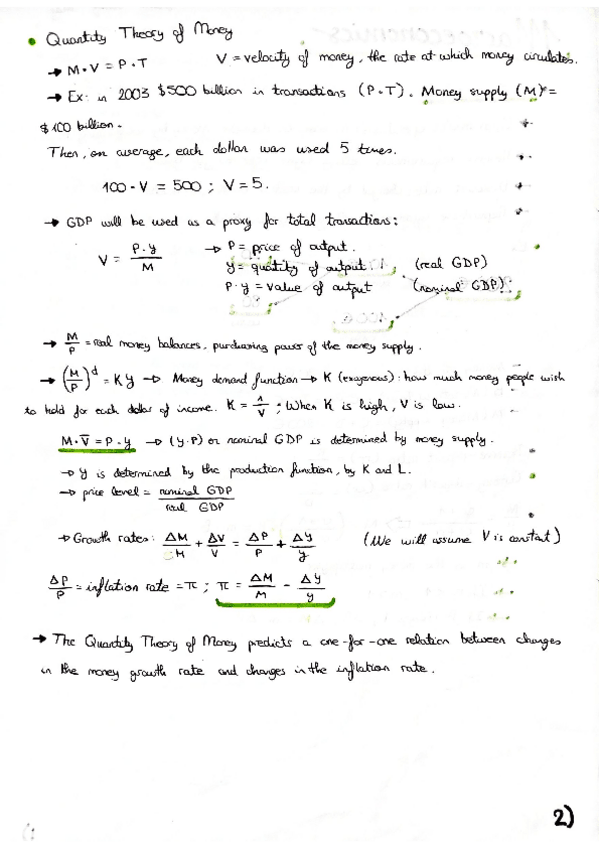 • Quantity Theory of Money
→ M·V = P·T V = velocity of money, the rate at which money circulates.
→ Ex: in 2003 $500 billion in transactions (P·T). Money supply (M) =
$100 billion.
Then, on average, each dollar was used 5 times.
100·V = 500 ; V = 5.
→ GDP will be used as a proxy for total transactions:
V = P·y / M → P = price of output.
y = quantity of output. (real GDP)
P·y = value of output (nominal GDP)
→ M/P = real money balances, purchasing power of the money supply.
→ (M/P)^d = K y → Money demand function → K (exogenous): how much money people wish
to hold for each dollar of income. K = 1/V ; When K is high, V is low.
M·V̅ = P·y → (y·P) or nominal GDP is determined by money supply.
→ y is determined by the production function, by K and L.
→ price level = nominal GDP / real GDP
→ Growth rates: ΔM/M + ΔV/V = ΔP/P + Δy/y (We will assume V is constant)
ΔP/P = inflation rate = π ; π = ΔM/M - Δy/y
→ The Quantity Theory of Money predicts a one-for-one relation between changes
in the money growth rate and changes in the inflation rate.
2)